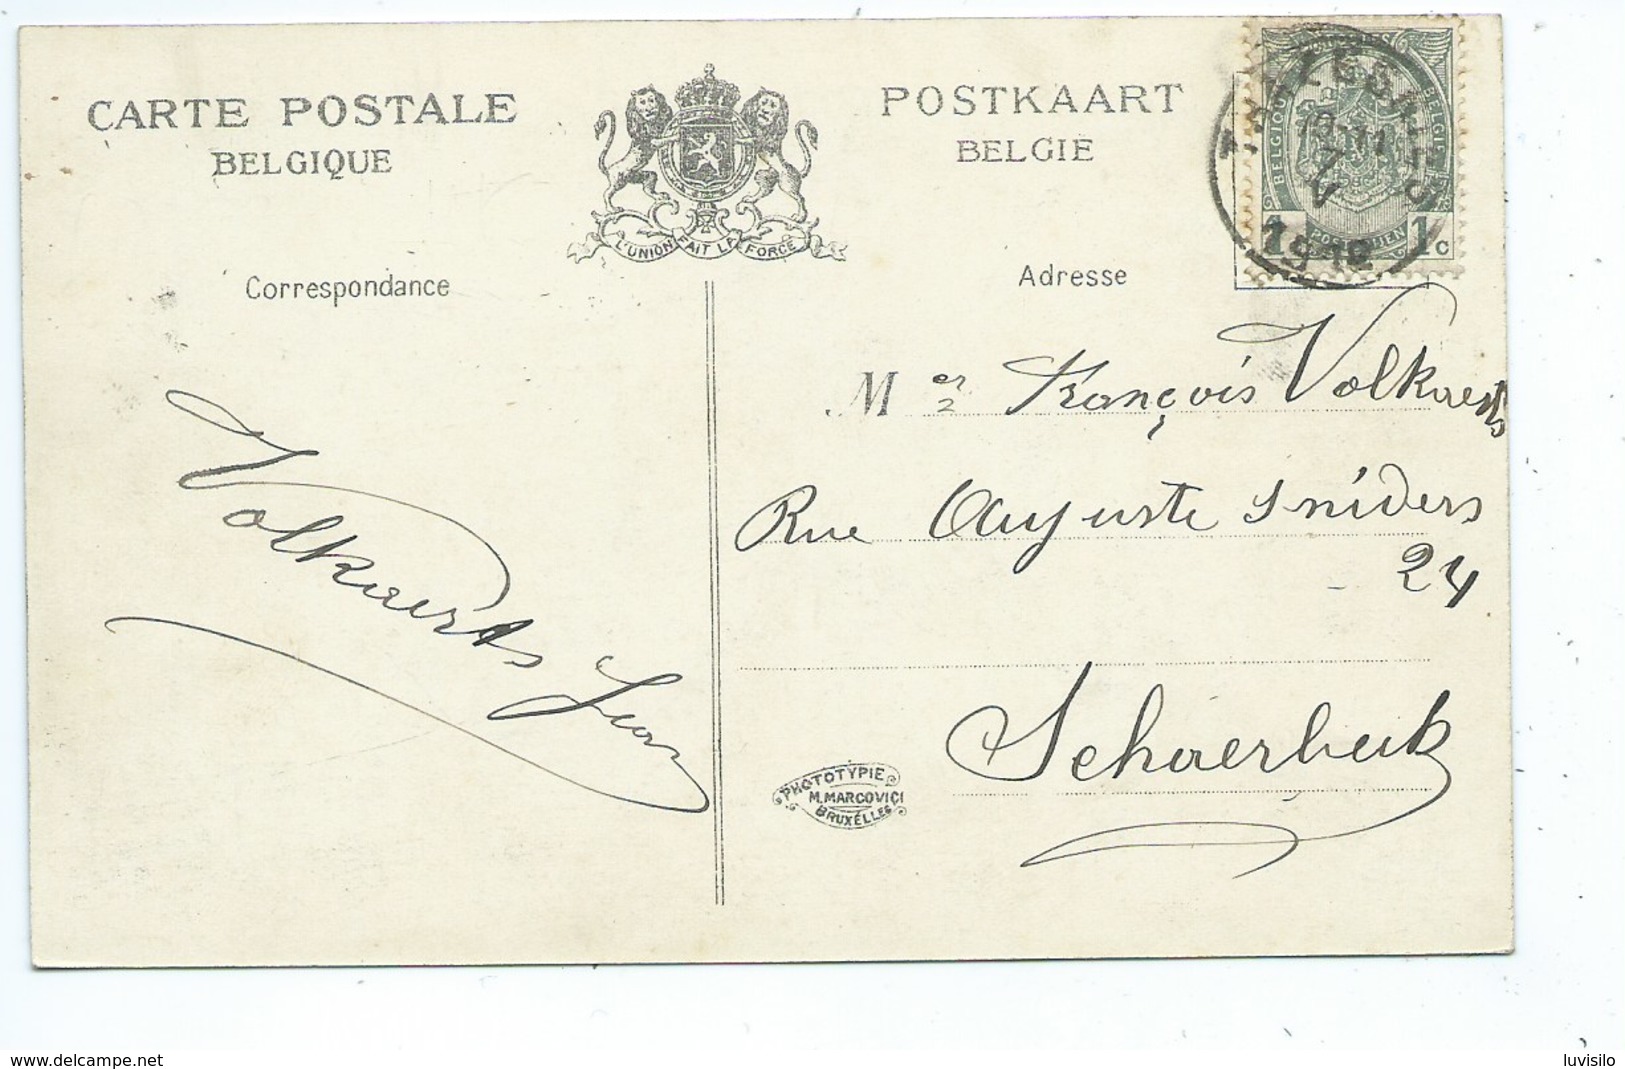 CARTE POSTALE
BELGIQUE
POSTKAART
BELGIE
L'UNION FAIT LA FORCE
Correspondance
Adresse
BELGIQUE
BELGIE
1
1c
10-11
7
V
1912
Mr François Volkaerts
Rue Auguste Snieders
24
Schaerbeek
Volkaerts Jean
PHOTOTYPIE
M. MARCOVICI
BRUXELLES
www.delcampe.net
luvisilo